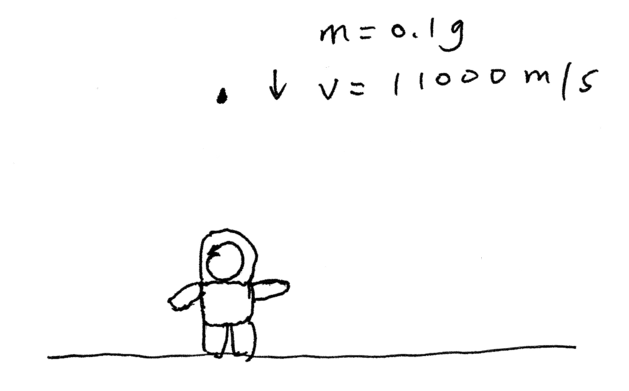 m = 0.1g
↓ v = 11000 m/s